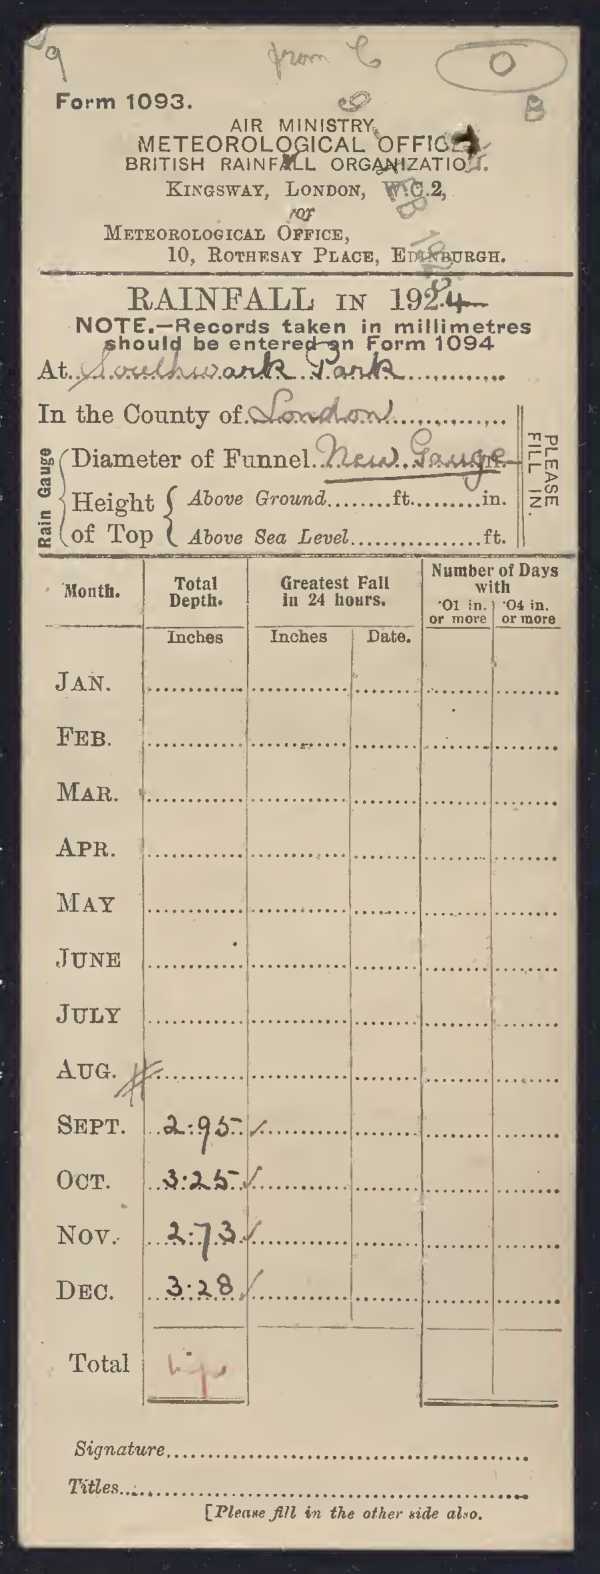 9
from C
O
B
Form 1093.
AIR MINISTRY,
METEOROLOGICAL OFFICE
BRITISH RAINFALL ORGANIZATION.
KINGSWAY, LONDON, W.C.2,
or
METEOROLOGICAL OFFICE,
10, ROTHESAY PLACE, EDINBURGH.
RAINFALL IN 1924
NOTE.—Records taken in millimetres
should be entered on Form 1094
At Southwark Park
In the County of London
Rain Gauge
Diameter of Funnel New Gauge
Height of Top
Above Ground........ft........in.
Above Sea Level................ft.
PLEASE FILL IN.
Month. Total Depth. Greatest Fall in 24 hours. Number of Days with
·01 in. or more ·04 in. or more
Inches Inches Date.
JAN.
FEB.
MAR.
APR.
MAY
JUNE
JULY
AUG.
SEPT. 2.95 ✓
OCT. 3.25 ✓
NOV. 2.73 ✓
DEC. 3.28 ✓
Total
Signature
Titles
[Please fill in the other side also.